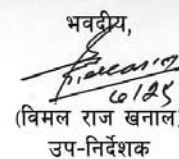 भवदीय,
6/25
(विमल राज खनाल)
उप-निर्देशक